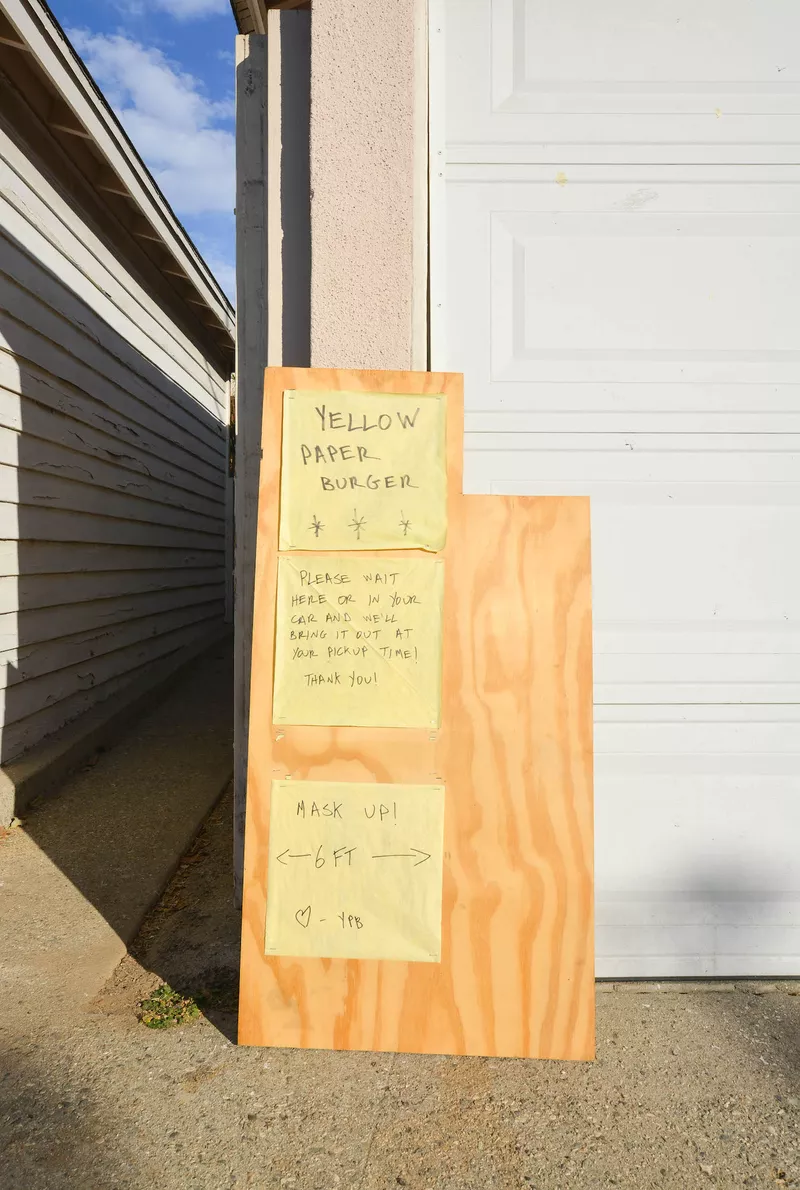 YELLOW
PAPER
BURGER
PLEASE WAIT
HERE OR IN YOUR
CAR AND WE'LL
BRING IT OUT AT
YOUR PICKUP TIME!
THANK YOU!
MASK UP!
← 6 FT →
♡ - YPB